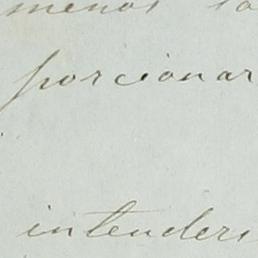 menos la
porcionar
intenders